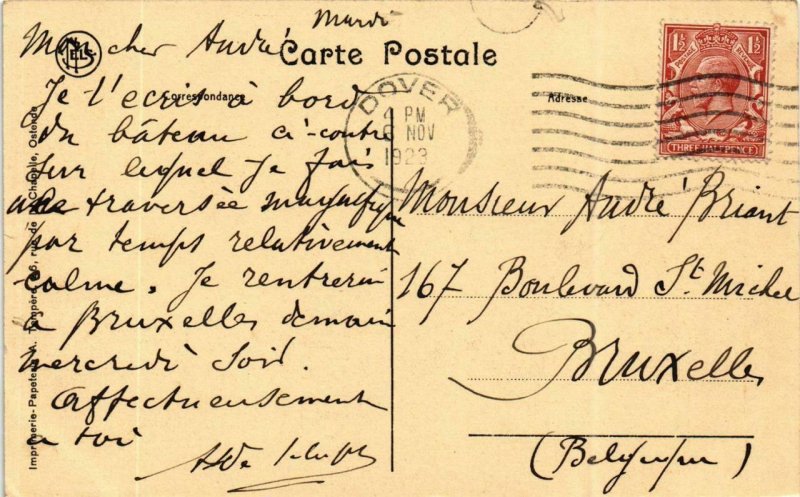 Mardi
Mon cher André
Carte Postale
NELS
Correspondance
Adresse
Je t'ecris à bord
du bâteau ci-contre
sur lequel je fais
une traversée magnifique
par temps relativement
calme. Je rentrerai
à Bruxelles demain
mercredi soir.
Affectueusement
a toi
DOVER
4 PM
6 NOV
1923
POSTAGE REVENUE
1½ 1½
THREE HALFPENCE
Monsieur André Briant
167 Boulevard St Michel
Bruxelles
(Belgique)
Imprimerie-Papeterie A. Tempère, rue de la Chapelle, Ostende